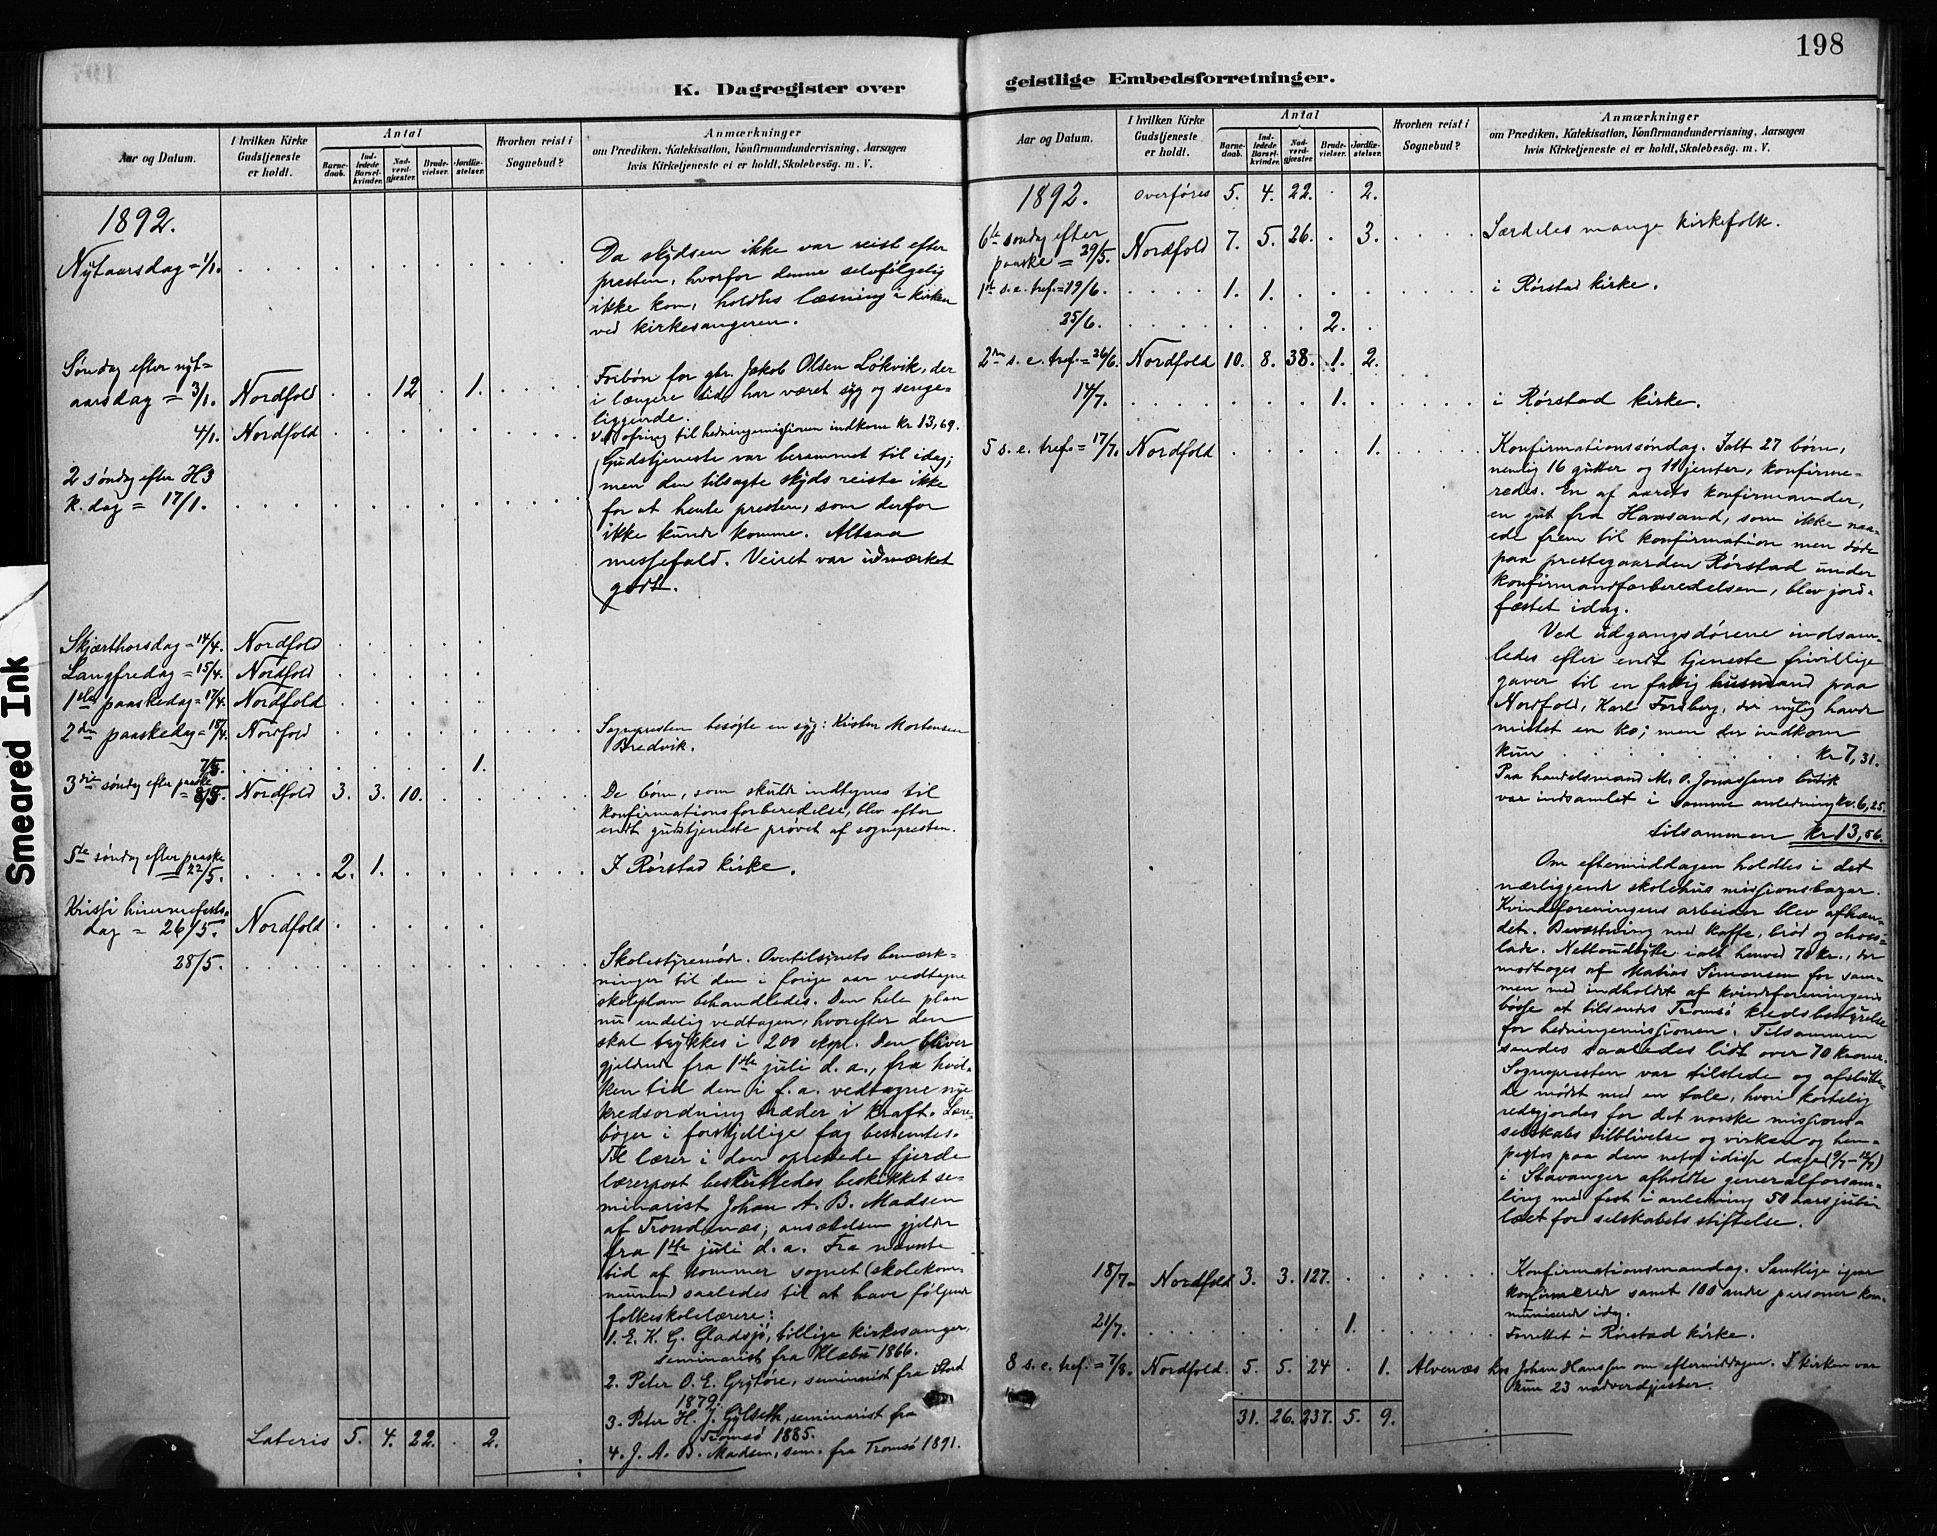 198
K. Dagregister over
geistlige Embedsforretninger.
Aar og Datum.
I hvilken Kirke Gudstjeneste er holdt.
Antal
Barnedaab.
Indledede Barselkvinder.
Nadverdgjester.
Brudevielser.
Jordfæstelser.
Hvorhen reist i Sognebud?
Anmærkninger
om Prædiken, Katekisation, Konfirmandundervisning, Aarsagen
hvis Kirketjeneste ei er holdt, Skolebesøg. m. V.
1892.
Nytaarsdag = 1/1.
Da skydsen ikke var reist efter
presten, hvorfor denne selvfølgelig
ikke kom, holdtes læsning i kirken
ved kirkesangeren.
Søndag efter nyt=
aarsdag = 3/1. Nordfold 12 1.
Forbøn for gbr. Jakob Olsen Løkvik, der
i længere tid har været syg og senge-
liggende.
4/1. Nordfold
Ved ofring til hedningemissionen indkom kr 13,69.
2 søndag efter H3
k. dag = 17/1.
Gudstjeneste var berammet til idag;
men den tilsagte skyds reiste ikke
for at hente presten, som derfor
ikke kunde komme. Altsaa
messefald. Veiret var udmærket
godt.
Skjærthorsdag = 14/4. Nordfold
Langfredag = 15/4. Nordfold
1ste paaskedag = 17/4. Nordfold
2den paaskedag = 18/4. Nordfold
Sognepresten besøgte en syg: Kirsten Mortensen
Bredvik.
7/5. 1.
3die søndag efter paaske
= 8/5. Nordfold 3. 3. 10.
De børn, som skulde indtegnes til
konfirmationsforberedelse, blev efter
endt gudstjeneste prøvet af sognepresten.
5te søndag efter paaske
= 22/5. 2. 1. I Rørstad kirke.
Kristi himmelfarts-
dag = 26/5. Nordfold
28/5.
Skolestyremøde. Overtilsynets bemærk-
ninger til den i forige aar vedtagne
skoleplan behandledes. Den hele plan
nu endelig vedtagen, hvorefter den
skal trykkes i 200 expl. Den bliver
gjeldende fra 1ste juli d. a., fra hvil-
ken tid den i f. a. vedtagne nye
kredsordning træder i kraft. Lære-
bøger i forskjellige fag bestemtes.
Til lærer i den oprettede fjerde
lærerpost besluttedes beskikket se-
minarist Johan A. B. Madsen
af Trondenæs; ansættelsen gjelder
fra 1ste juli d. a. Fra nævnte
tid af kommer sognet (skolekom-
munen) saaledes til at have følgende
folkeskolelærere:
1. E. K. G. Gladsjø, tillige kirkesanger,
seminarist fra Klæbu 1866.
2. Peter O. E. Grytøre, seminarist fra Stord
1879.
3. Peter H. J. Gylseth, seminarist fra
Tromsø 1885.
4. J. A. B. Madsen, sem. fra Tromsø 1891.
Lateris 5. 4. 22. 2.
Aar og Datum.
I hvilken Kirke Gudstjeneste er holdt.
Antal
Barnedaab.
Indledede Barselkvinder.
Nadverdgjester.
Brudevielser.
Jordfæstelser.
Hvorhen reist i Sognebud?
Anmærkninger
om Prædiken, Katekisation, Konfirmandundervisning, Aarsagen
hvis Kirketjeneste ei er holdt, Skolebesøg. m. V.
1892. overføres 5. 4. 22. 2.
6te søndag efter
paaske = 29/5. Nordfold 7. 5. 26. 3. Særdeles mange kirkefolk.
1ste s. e. tref. = 19/6. 1. 1. i Rørstad kirke.
25/6. 2.
2den s. e. tref. = 26/6. Nordfold 10. 8. 38. 1. 2.
14/7. 1. i Rørstad kirke.
5 s. e. tref. = 17/7. Nordfold 1.
Konfirmationssøndag. Ialt 27 børn,
nemlig 16 gutter og 11 jenter, konfirme-
redes. En af aarets konfirmander,
en gut fra Hansand, som ikke naa-
ede frem til konfirmation men døde
paa prestegaarden Rørstad under
konfirmandforberedelsen, blev jord-
fæstet idag.
Ved udgangsdørene indsam-
ledes efter endt tjeneste frivillige
gaver til en fattig husmand paa
Nordfold, Karl Forsberg, der nylig havde
mistet en ko; men der indkom
kun kr 7,31.
Paa handelsmand M. O. Jonassens butik
var indsamlet i samme anledning kr. 6,25.
tilsammen kr 13,56.
Om eftermiddagen holdtes i det
nærliggende skolehus missionsbazar.
Kvindeforeningens arbeider blev afhæn-
det. Beværtning med kaffe, brød og choco-
lade. Nettoudbytte ialt henved 70 kr., der
modtoges af Matias Simonsen for sam-
men med indholdet af kvindeforeningens
bøsse at tilsendes Tromsø kredsbestyrelse
for hedningemissionen. Tilsammen
sendes saaledes lidt over 70 kroner.
Sognepresten var tilstede og afslutte-
de mødet med en tale, hvori kortelig
redegjordes for det norske missions-
selskabs tilblivelse og virken og hen-
pegtes paa den netop i disse dage (9/7 – 12/7)
i Stavanger afholdte generalforsam-
ling med fest i anledning 50 aarsjubi-
læet for selskabets stiftelse.
18/7. Nordfold 3. 3. 127.
Konfirmationsmandag. Samtlige igaar
konfirmerede samt 100 andre personer kom-
municerede idag.
21/7. 1. Forrettet i Rørstad kirke.
8 s. e. tref. = 7/8. Nordfold. 5. 5. 24 1. Alvenæs hos Johan Hanssen om eftermiddagen. I kirken var
kun 23 nadverdgjester.
31. 26. 237. 5. 9.
Smeared Ink